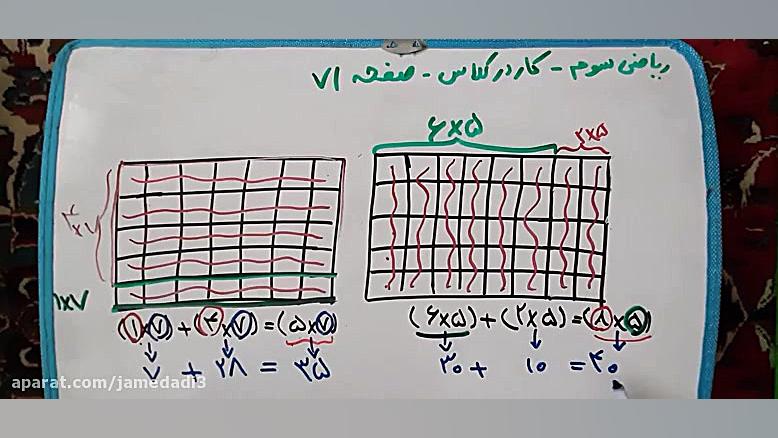 ریاضی سوم - کار در کلاس - صفحه ۷۱
۶×۵
۲×۵
۴×۷
۱×۷
(۶×۵) + (۲×۵) = (۸×۵)
۳۰ + ۱۰ = ۴۰
(۱×۷) + (۴×۷) = (۵×۷)
۷ + ۲۸ = ۳۵
aparat.com/jamedadi3